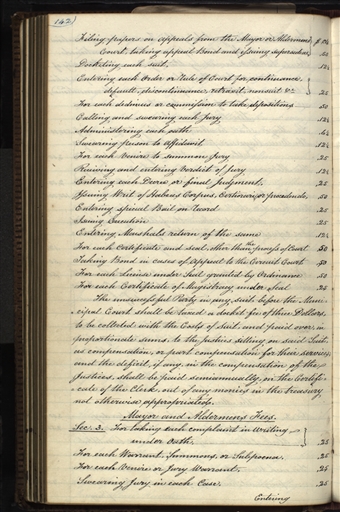 142
Filing papers on appeals from the Mayor or Aldermens
Court, taking appeal Bond and issuing supersedeas
Docketing each suit, .12½
Entering each Order or Rule of Court for continuance,
default, discontinuance, retraxit, nonsuit &c. .25
For each dedimus or commission to take depositions .50
Calling and swearing each Jury .12½
Administering each oath
Swearing person to Affidavit .12½
For each Venire to summon Jury .25
Receiving and entering Verdict of Jury .12½
Entering each Decree or final Judgment. .25
Issuing Writ of Habeas Corpus, Certiorari or procedendo, .50
Entering special Bail on Record .25
Issuing Execution .25
Entering Marshals return of the same .12½
For each Certificate and seal, other than the process of Court .50
Taking Bond in cases of Appeal to the Circuit Court .50
For each License under Seal granted by Ordinance .50
For each Certificate of Magistracy under Seal .25
The unsuccessful Party in any suit before the Muni-
cipal Court shall be taxed a docket fee of three Dollars,
to be collected with the Costs of Suit, and paid over, in
proportionate sums, to the Justices sitting on said Suit
as compensation, or part compensation for their services,
and the deficit, if any, in the compensation of the
Justices, shall be paid semiannually, on the Certifi-
cate of the Clerk, out of any monies in the treasury
not otherwise appropriated.
Mayor and Aldermens Fees.
Sec. 3. For taking each complaint in Writing
under Oath. .25
For each Warrant, Summons, or Subpoena. .25
For each Venire or Jury Warrant. .25
Swearing Jury in each Case. .25
Entering